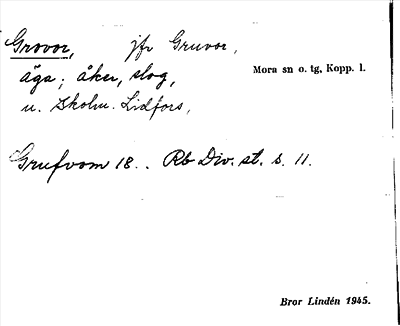 Grovor, jfr Gruvor,
äga; åker, slog, Mora sn o. tg, Kopp. l.
u. Ekholm. Lidfors,
Grufvom 18.. Rb Div. st. s. 11.
Bror Lindén 1945.